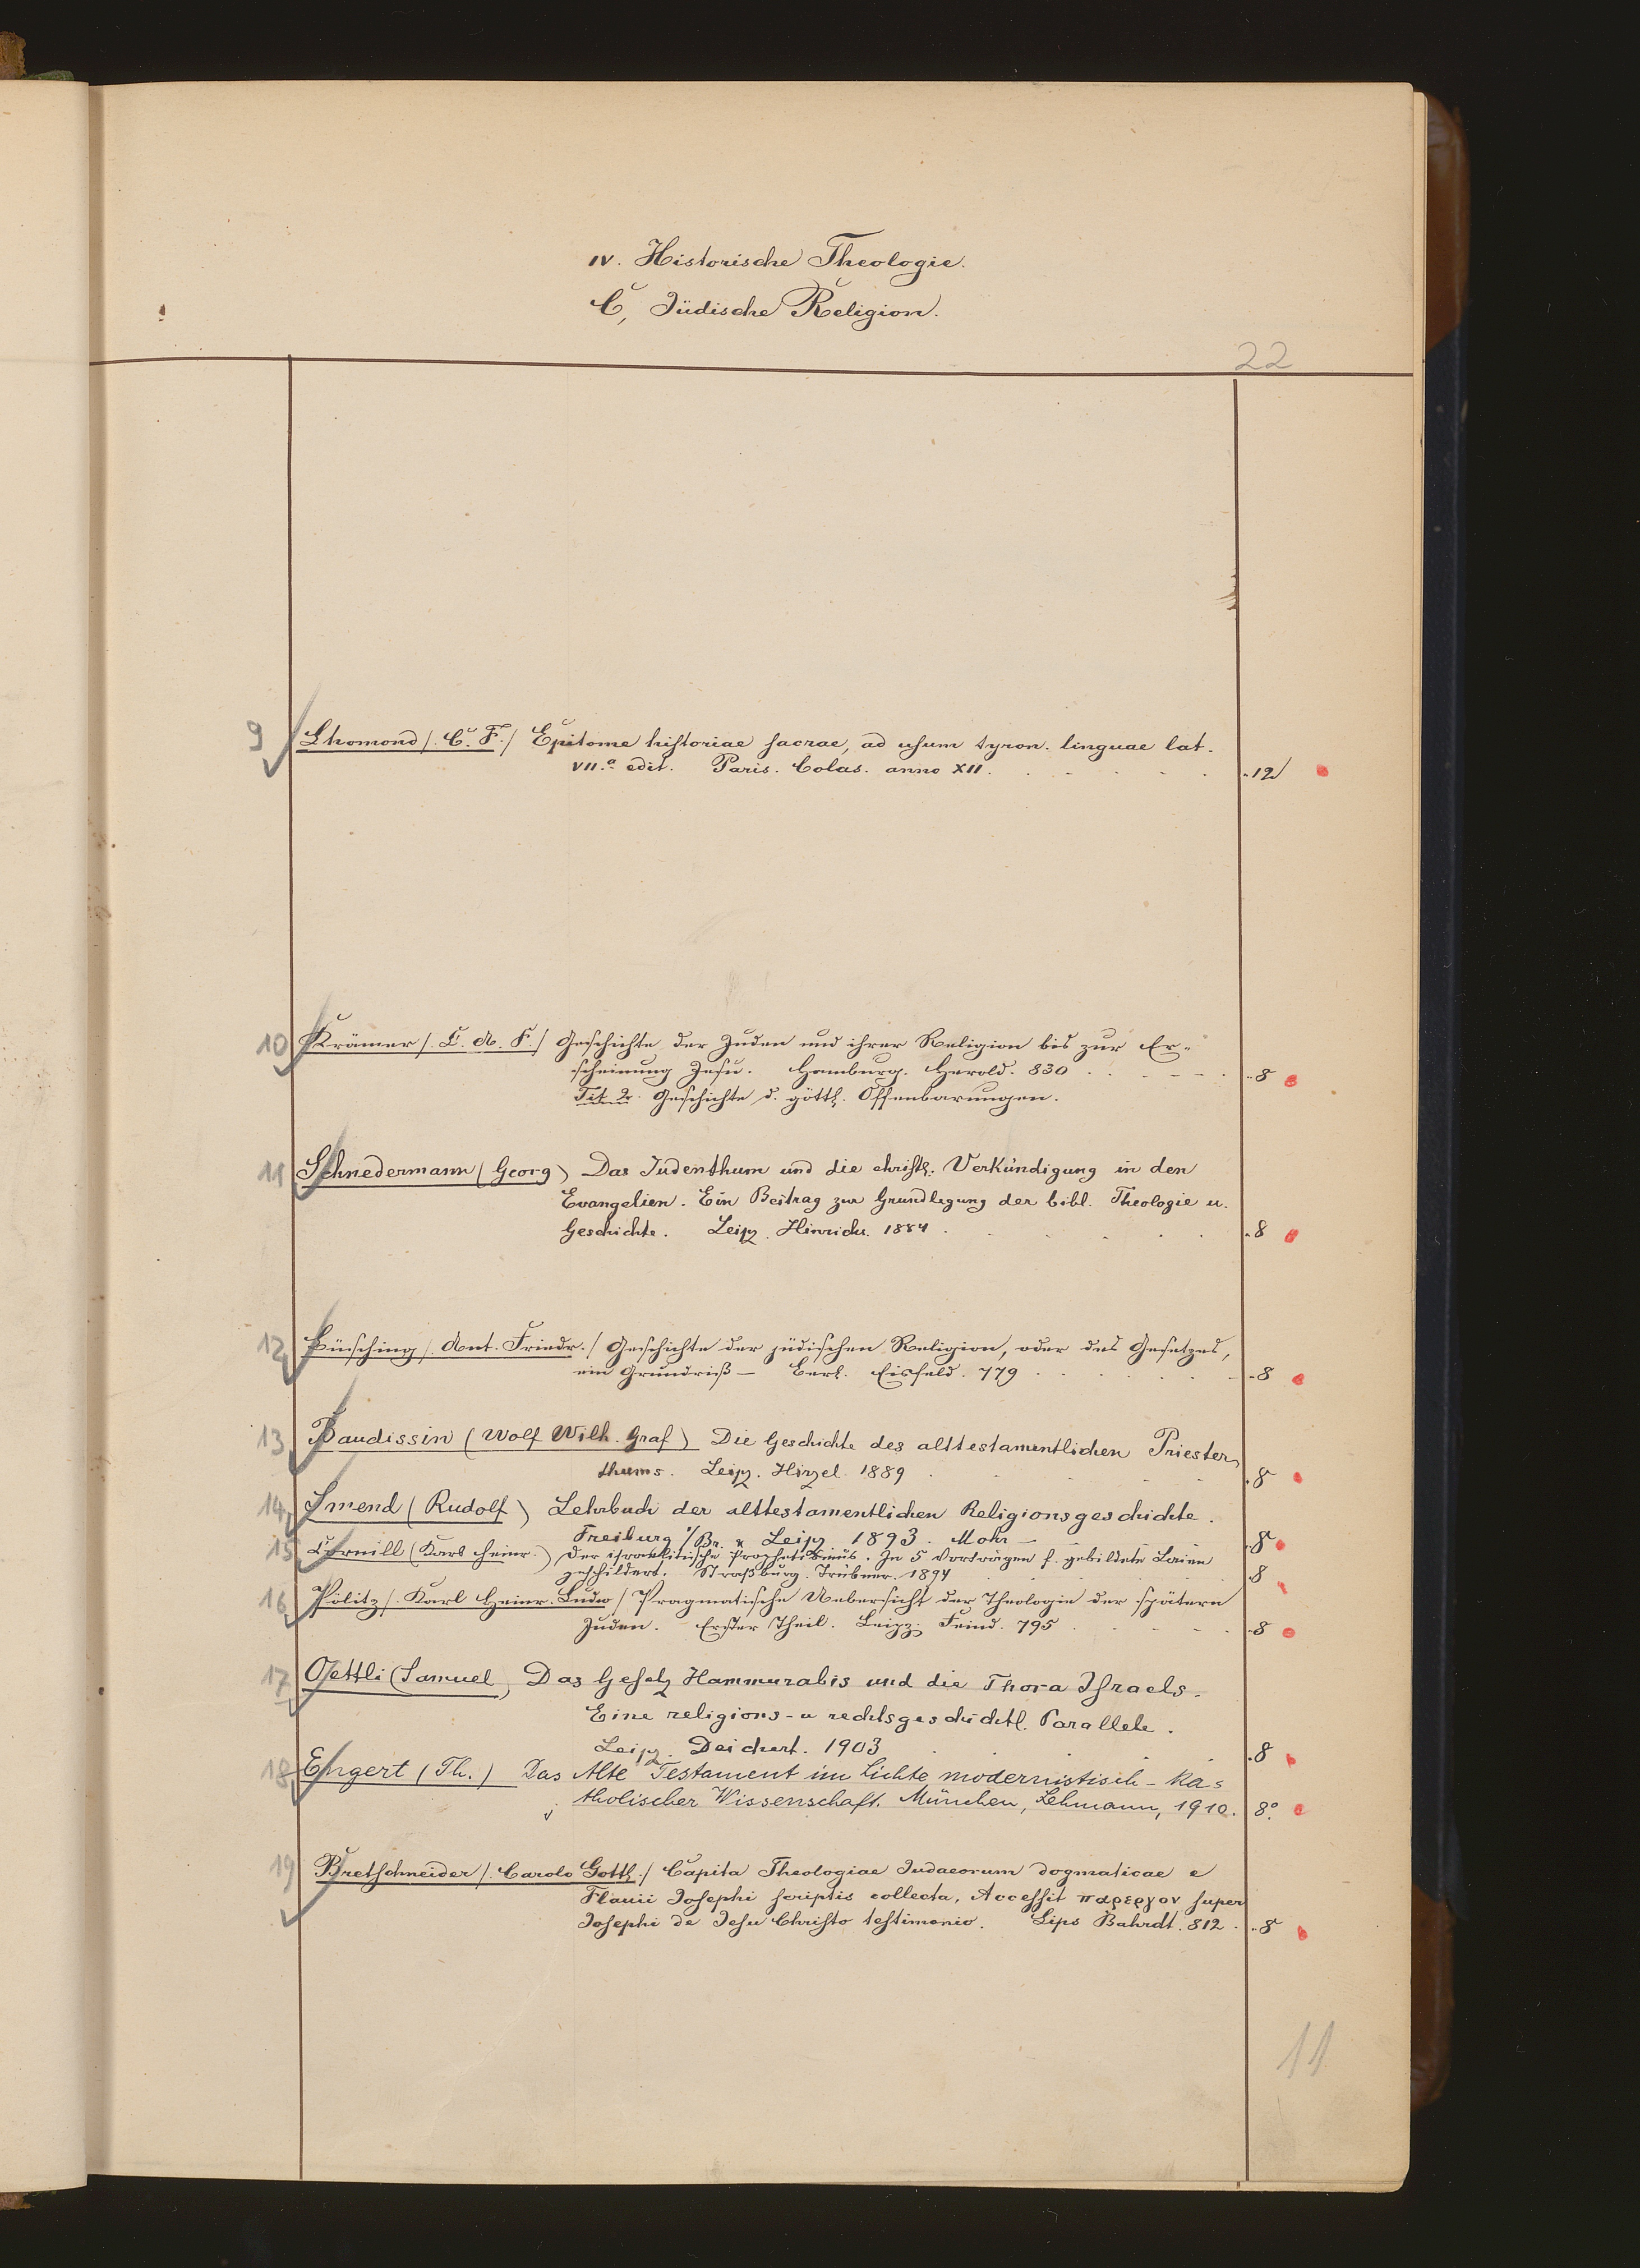 IV. Historische Theologie.
C, Jüdische Religion.
22
9 Lhomond /. C. F. / Epitome historiae sacrae, ad usum tyron. linguae lat.
VII.a edit. Paris. Colas. anno XII. 12
10 Krämer /. C. A. F. / Geschichte der Juden und ihrer Religion bis zur Er-
scheinung Jesu. Hamburg. Herold. 830 8
Tit. 2. Geschichte d. göttl. Offenbarungen.
11 Schnedermann (Georg) Das Judenthum und die christl. Verkündigung in den
Evangelien. Ein Beitrag zur Grundlegung der bibl. Theologie u.
Geschichte. Leipz. Hinrichs. 1884 8
12 Büsching /. Ant. Friedr. / Geschichte der jüdischen Religion, oder des Gesetzes,
ein Grundriß – Berl. Eisfeld. 779 8
13 Baudissin (Wolf Wilh. Graf) Die Geschichte des alttestamentlichen Priester
thums. Leipz. Hirzel. 1889 8
14 Smend (Rudolf) Lehrbuch der alttestamentlichen Religionsgeschichte.
Freiburg i/Br. u Leipz 1893. Mohr – 8
15 Cornill (Karl Heinr.) Der israelitische Prophetismus. In 5 Vorträgen f. gebildete Laien
geschildert. Straßburg. Trübner. 1894 8
16 Pölitz /. Karl Heinr. Ludw / Pragmatische Uebersicht der Theologie der spätern
Juden. Erster Theil. Leipz. Feind. 795 8
17 Oettli (Samuel) Das Gesetz Hammurabis und die Thora Israels.
Eine religions- u rechtsgeschichtl. Parallele.
Leipz. Deichert. 1903 8
18 Engert (Th.) Das Alte Testament im Lichte modernistisch-ka-
tholischer Wissenschaft. München, Lehmann, 1910. 8°.
19 Bretschneider /. Carolo Gottl. / Capita Theologiae Judaeorum dogmaticae e
Flavii Josephi scriptis collecta, Accessit παρεργον super
Josephi de Jesu Christo testimonio. Lips Bahrdt. 812 8
11